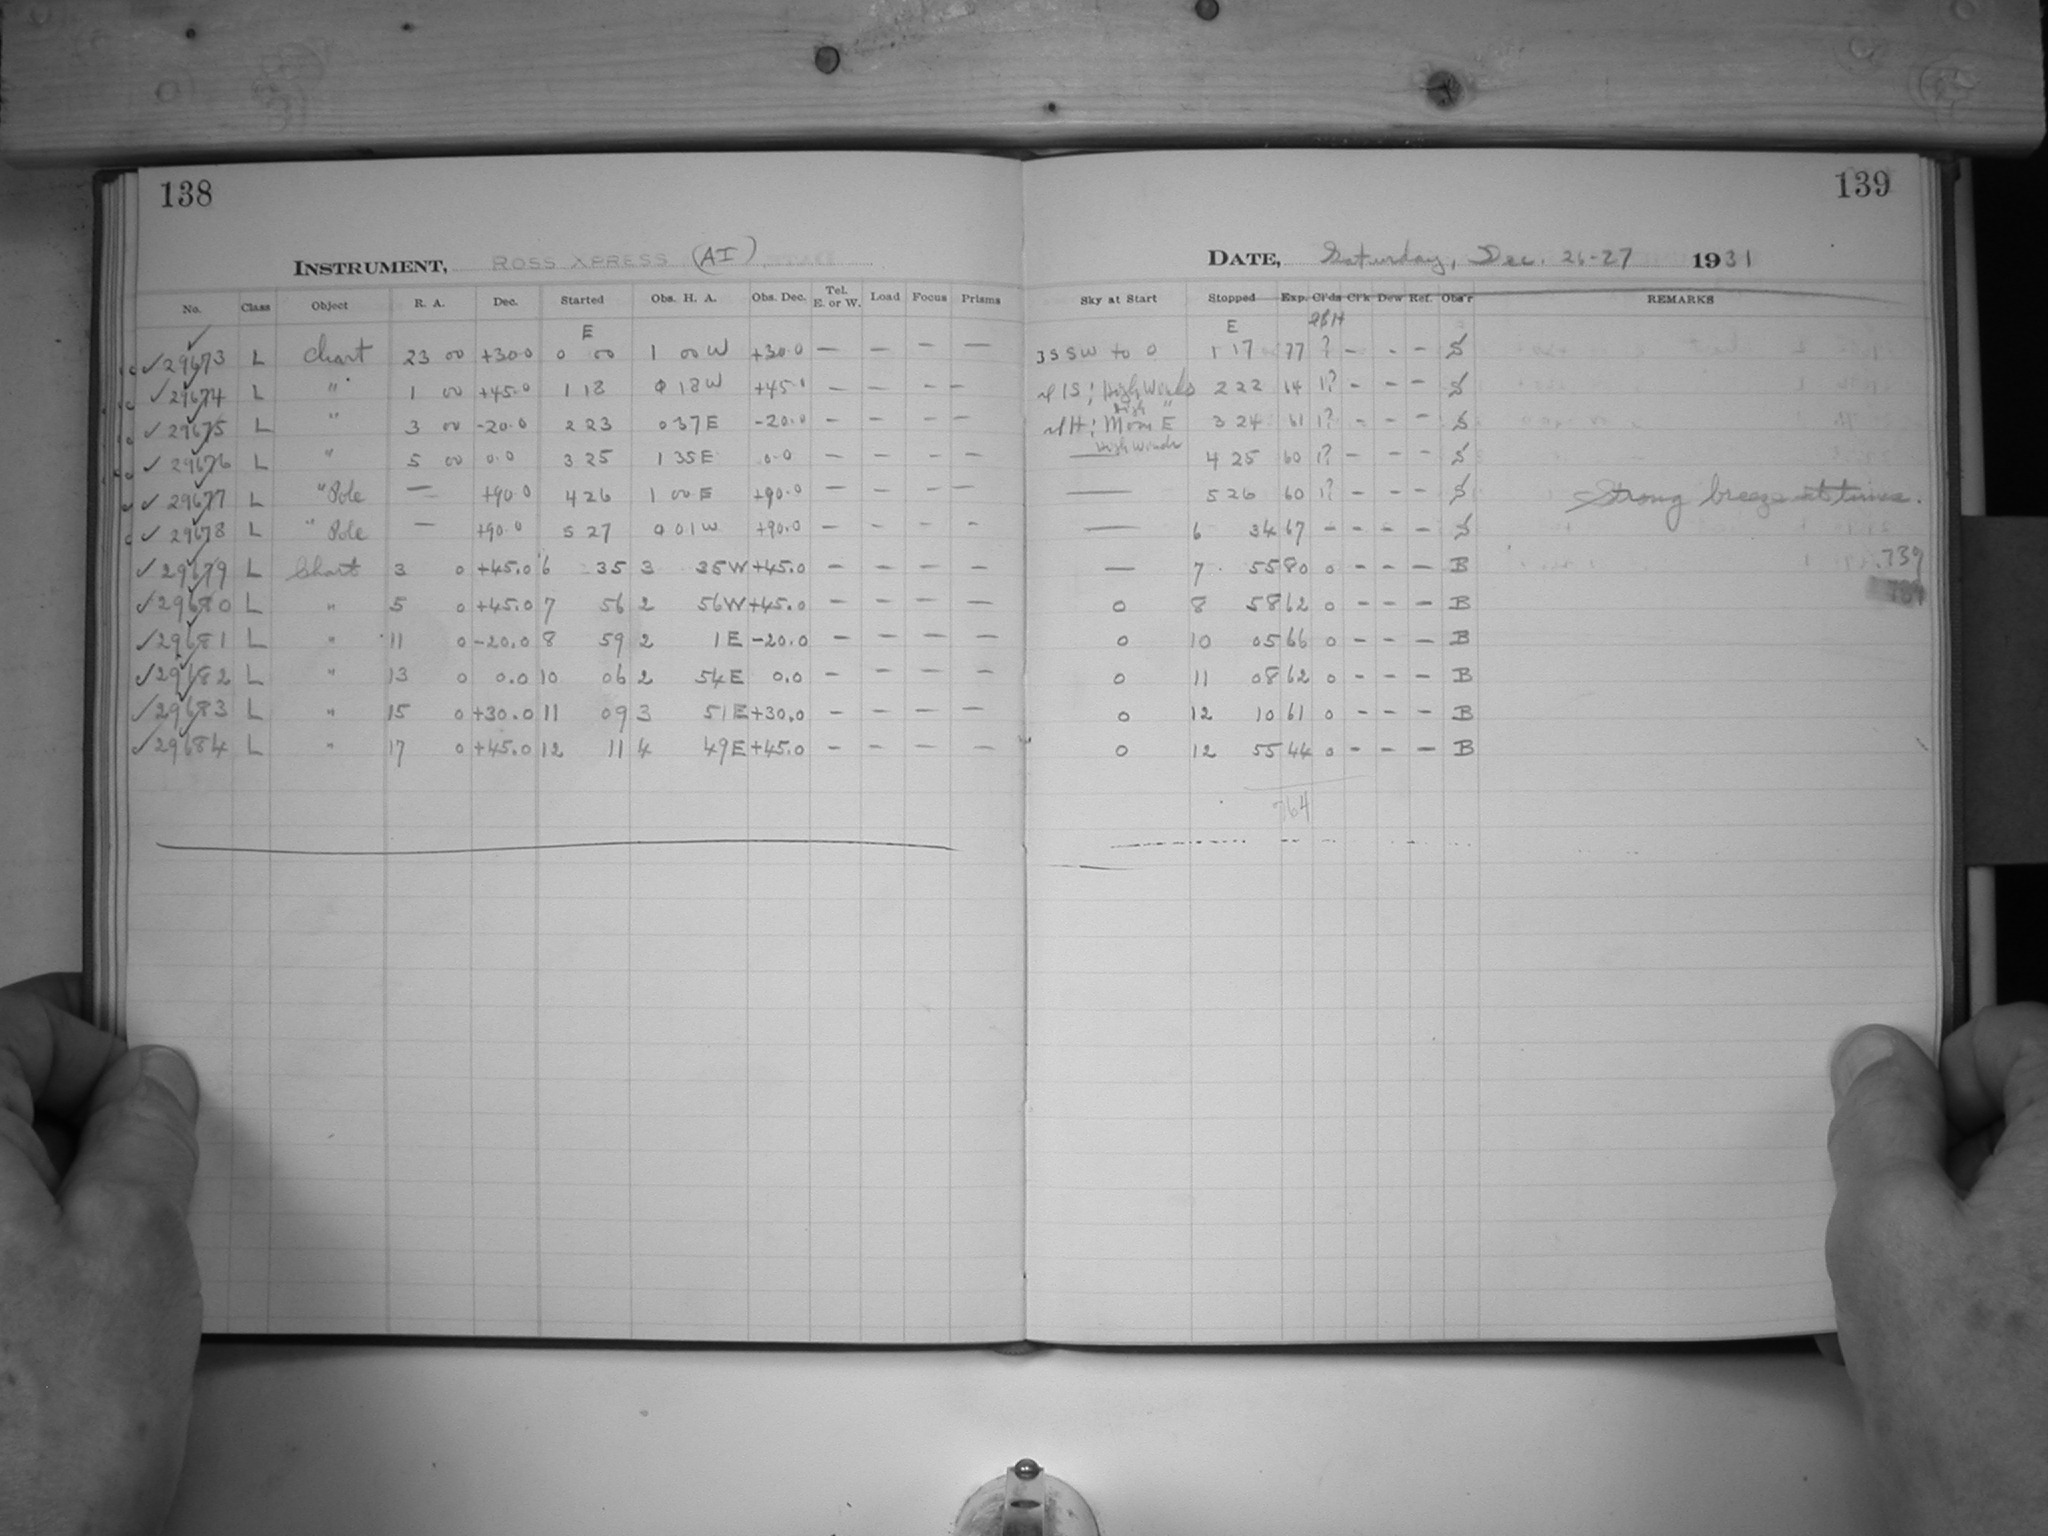 138
139
INSTRUMENT, ROSS XPRESS (AI)
DATE, Saturday, Dec. 26-27 1931
No. Class Object R. A. Dec. Started Obs. H. A. Obs. Dec. Tel. E. or W. Load Focus Prisms Sky at Start Stopped Exp. Cl'ds Cl'k Dew Ref. Obs'r REMARKS
E E
✓29673 L Chart 23 00 +30.0 0 00 1 00 W +30.0 — — — — 3SSW to 0 1 17 77 ? – - – S
✓29674 L " 1 00 +45.0 1 18 0 18 W +45.1 – – – – 1S; High Winds 2 22 64 1? - – – S
✓29675 L " 3 00 -20.0 2 23 0 37 E -20.0 – – – – H; Moon E 3 24 61 1? - – – S
High Winds
✓29676 L " 5 00 0.0 3 25 1 35 E 0.0 – – – – — 4 25 60 1? – – – S
✓29677 L " Pole — +90.0 4 26 1 00 E +90.0 – – – – — 5 26 60 1? – – – S Strong breeze at times.
✓29678 L " Pole — +90.0 5 27 0 01 W +90.0 – – – – — 6 34 67 – – – – S
✓29679 L Chart 3 0 +45.0 6 35 3 35 W +45.0 – – – – — 7 55 80 0 – – – B .739
✓29680 L " 5 0 +45.0 7 56 2 56 W +45.0 – – – – 0 8 58 62 0 – – – B
✓29681 L " 11 0 -20.0 8 59 2 1 E -20.0 – – – – 0 10 05 66 0 – – – B
✓29682 L " 13 0 0.0 10 06 2 54 E 0.0 – – – – 0 11 08 62 0 – – – B
✓29683 L " 15 0 +30.0 11 09 3 51 E +30.0 – – – – 0 12 10 61 0 – – – B
✓29684 L " 17 0 +45.0 12 11 4 49 E +45.0 – – – – 0 12 55 44 0 – – – B
764